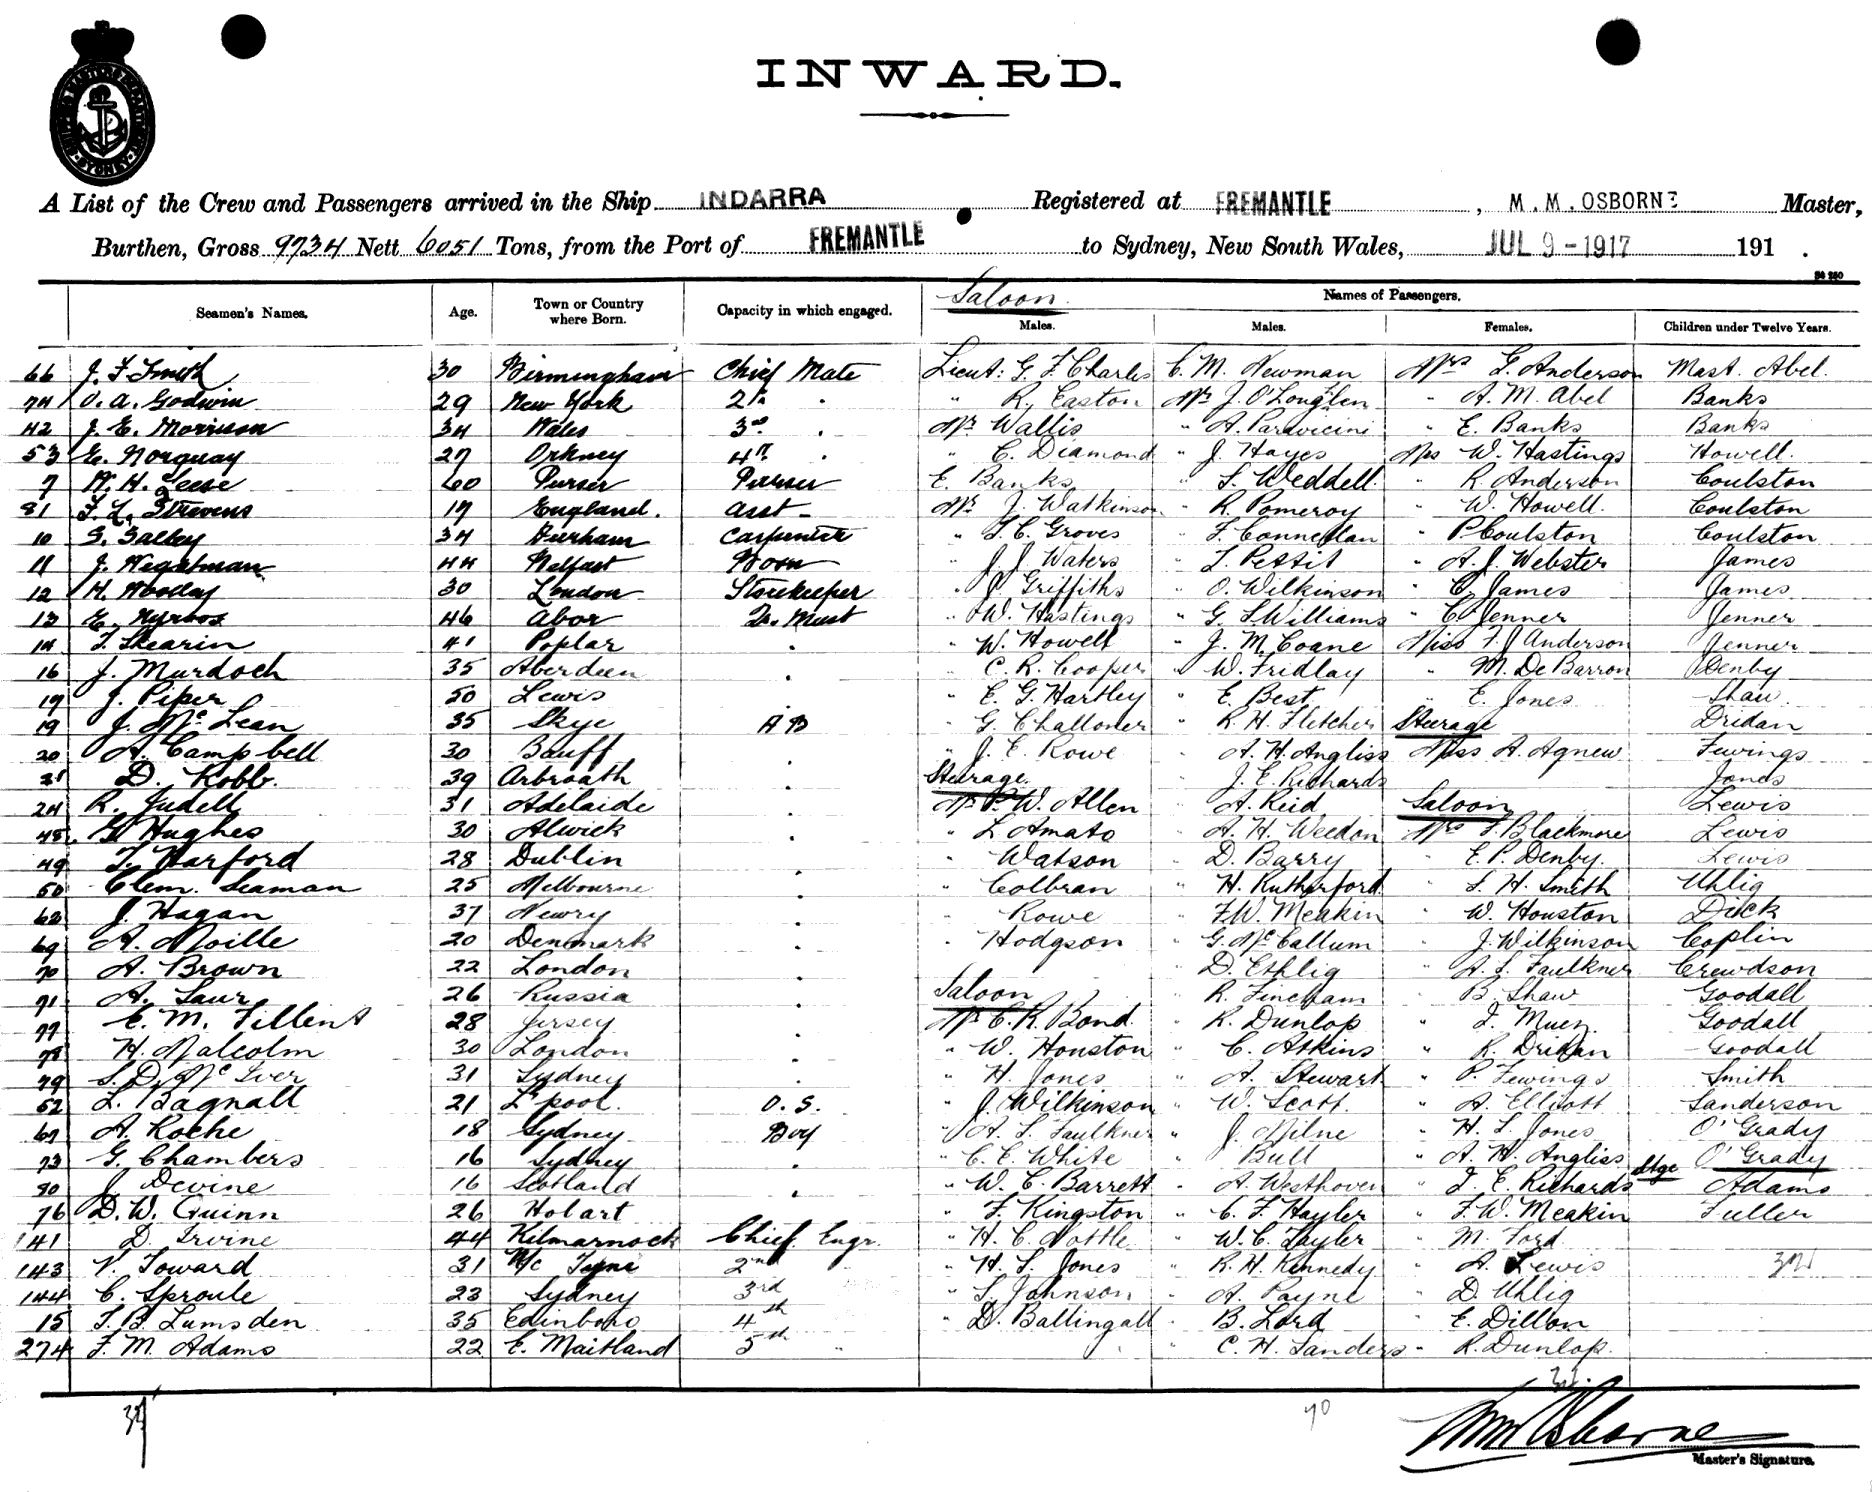 INWARD.
A List of the Crew and Passengers arrived in the Ship INDARRA Registered at FREMANTLE, M. M. OSBORNE Master,
Burthen, Gross 9734 Nett 6051 Tons, from the Port of FREMANTLE to Sydney, New South Wales, JUL 9-1917 191 .
Saloon Names of Passengers.
Seamen's Names. Age. Town or Country where Born. Capacity in which engaged. Males. Males. Females. Children under Twelve Years.
66 J. F. Smith 30 Birmingham Chief Mate Lieut: G. F. Charles C. M. Newman Mrs G. Anderson Mast. Abel.
74 O. A. Godwin 29 New York 2nd " " R. Easton Mr J. O'Loughlen " A. M. Abel Banks
42 J. E. Morrison 34 Wales 3rd " Mr Wallis " A. Paravicini " E. Banks Banks
53 E. Norquay 27 Orkney 4th " " C. Diamond " J. Hayes Mrs W. Hastings Howell.
7 W. H. Leese 60 Purser Purser E. Banks " S. Weddell. " R. Anderson Coulston
81 F. L. Stravens 19 England. Asst- Mr J. Watkinson " R. Pomeroy " W. Howell. Coulston
10 G. Galley 34 Durham Carpenter " T. C. Groves " F. Connellan " P Coulston Coulston
11 J. 44 Belfast Bosn " J. J. Waters " L. Pettit " A. J. Webster James
12 H. Woolley 30 London Storekeeper " Griffiths " O. Wilkinson " C. James James
13 E. 46 Abor Qr. Mast " W. Hastings " G. S Williams " C. Jenner Jenner
14 T. Shearin 41 Poplar " " W. Howell " J. M. Coane Miss F. J Anderson Jenner
16 J. Murdoch 35 Aberdeen " " C. R. Cooper " W. Fridlay " M. De Barron Denby
19 J. Piper 50 Lewis " E. G. Hartley " E. Best " E. Jones Shaw
19 J. McLean 35 Skye A B " G. Challoner " R. H. Fletcher Steerage Dridan
20 A. Campbell 30 Banff " " J. E. Rowe " A. H. Angliss Miss A. Agnew Fewings
21 D. Robb. 39 Arbroath " Steerage. " J. E. Richards Jones
24 R. Judell 31 Adelaide " Mr P. W. Allen " A. Reid Saloon Lewis
45 G. Hughes 30 Alwick " " L. Amato " A. H. Weedon Mrs F. Blackmore Lewis
49 T. Harford 28 Dublin " " Watson " D. Barry " E. P. Denby. Lewis
50 Clem. Seaman 25 Melbourne " " Colbran " H. Rutherford " S. H. Smith Uhlig
62 J. Hagan 37 Newry " " Rowe " F. W. Meakin " W. Houston Dick
69 A. Moille 20 Denmark " " Hodgson " G. McCallum " J. Wilkinson Coplin
70 A. Brown 22 London " " D. Ethlig " A. S. Faulkner Crewdson
71 A. Saur 26 Russia " Saloon " R. Fincham " B. Shaw Goodall
77 E. M. Fillent 28 Jersey " Mr E. R. Bond " R. Dunlop " F. Goodall
78 H. Malcolm 30 London " " W. Houston " C. Atkins " R. Dridan Goodall
79 S. D. McIver 31 Sydney " " H. Jones " A. Stewart " P. Fewings Smith
52 L. Bagnall 21 L'pool. O. S. " J. Wilkinson " W. Scott. " A. Elliott Sanderson
67 A. Roche 18 Sydney Boy " A. S. Faulkner " J. Milne " H. S. Jones O'Grady
73 G. Chambers 16 Sydney " " C. E. White " Bull " A. H. Angliss O'Grady
80 J. Devine 16 Scotland " " W. C. Barrett " A. Westhoven " J. E. Richards Stge Adams
76 D. W. Guinn 26 Hobart " F. Kingston " C. F. Hayler " F. W. Meakin Fuller
141 D. Irvine 44 Kilmarnock Chief Engr. " H. C. Nottle " W. C. Tayler " M. Ford
143 V. Toward 31 N/c Tyne 2nd " H. S. Jones " R. H. Kennedy " A. Lewis 32
144 C. Sproule 23 Sydney 3rd " S. Johnson " A. Payne " D. Uhlig
15 T. B. Lumsden 35 Edinboro 4th " D. Ballingall " B. Lord " E. Dillon
274 F. M. Adams 22 E. Maitland 5th " " C. H. Sanders " R. Dunlop.
37 70
Master's Signature.